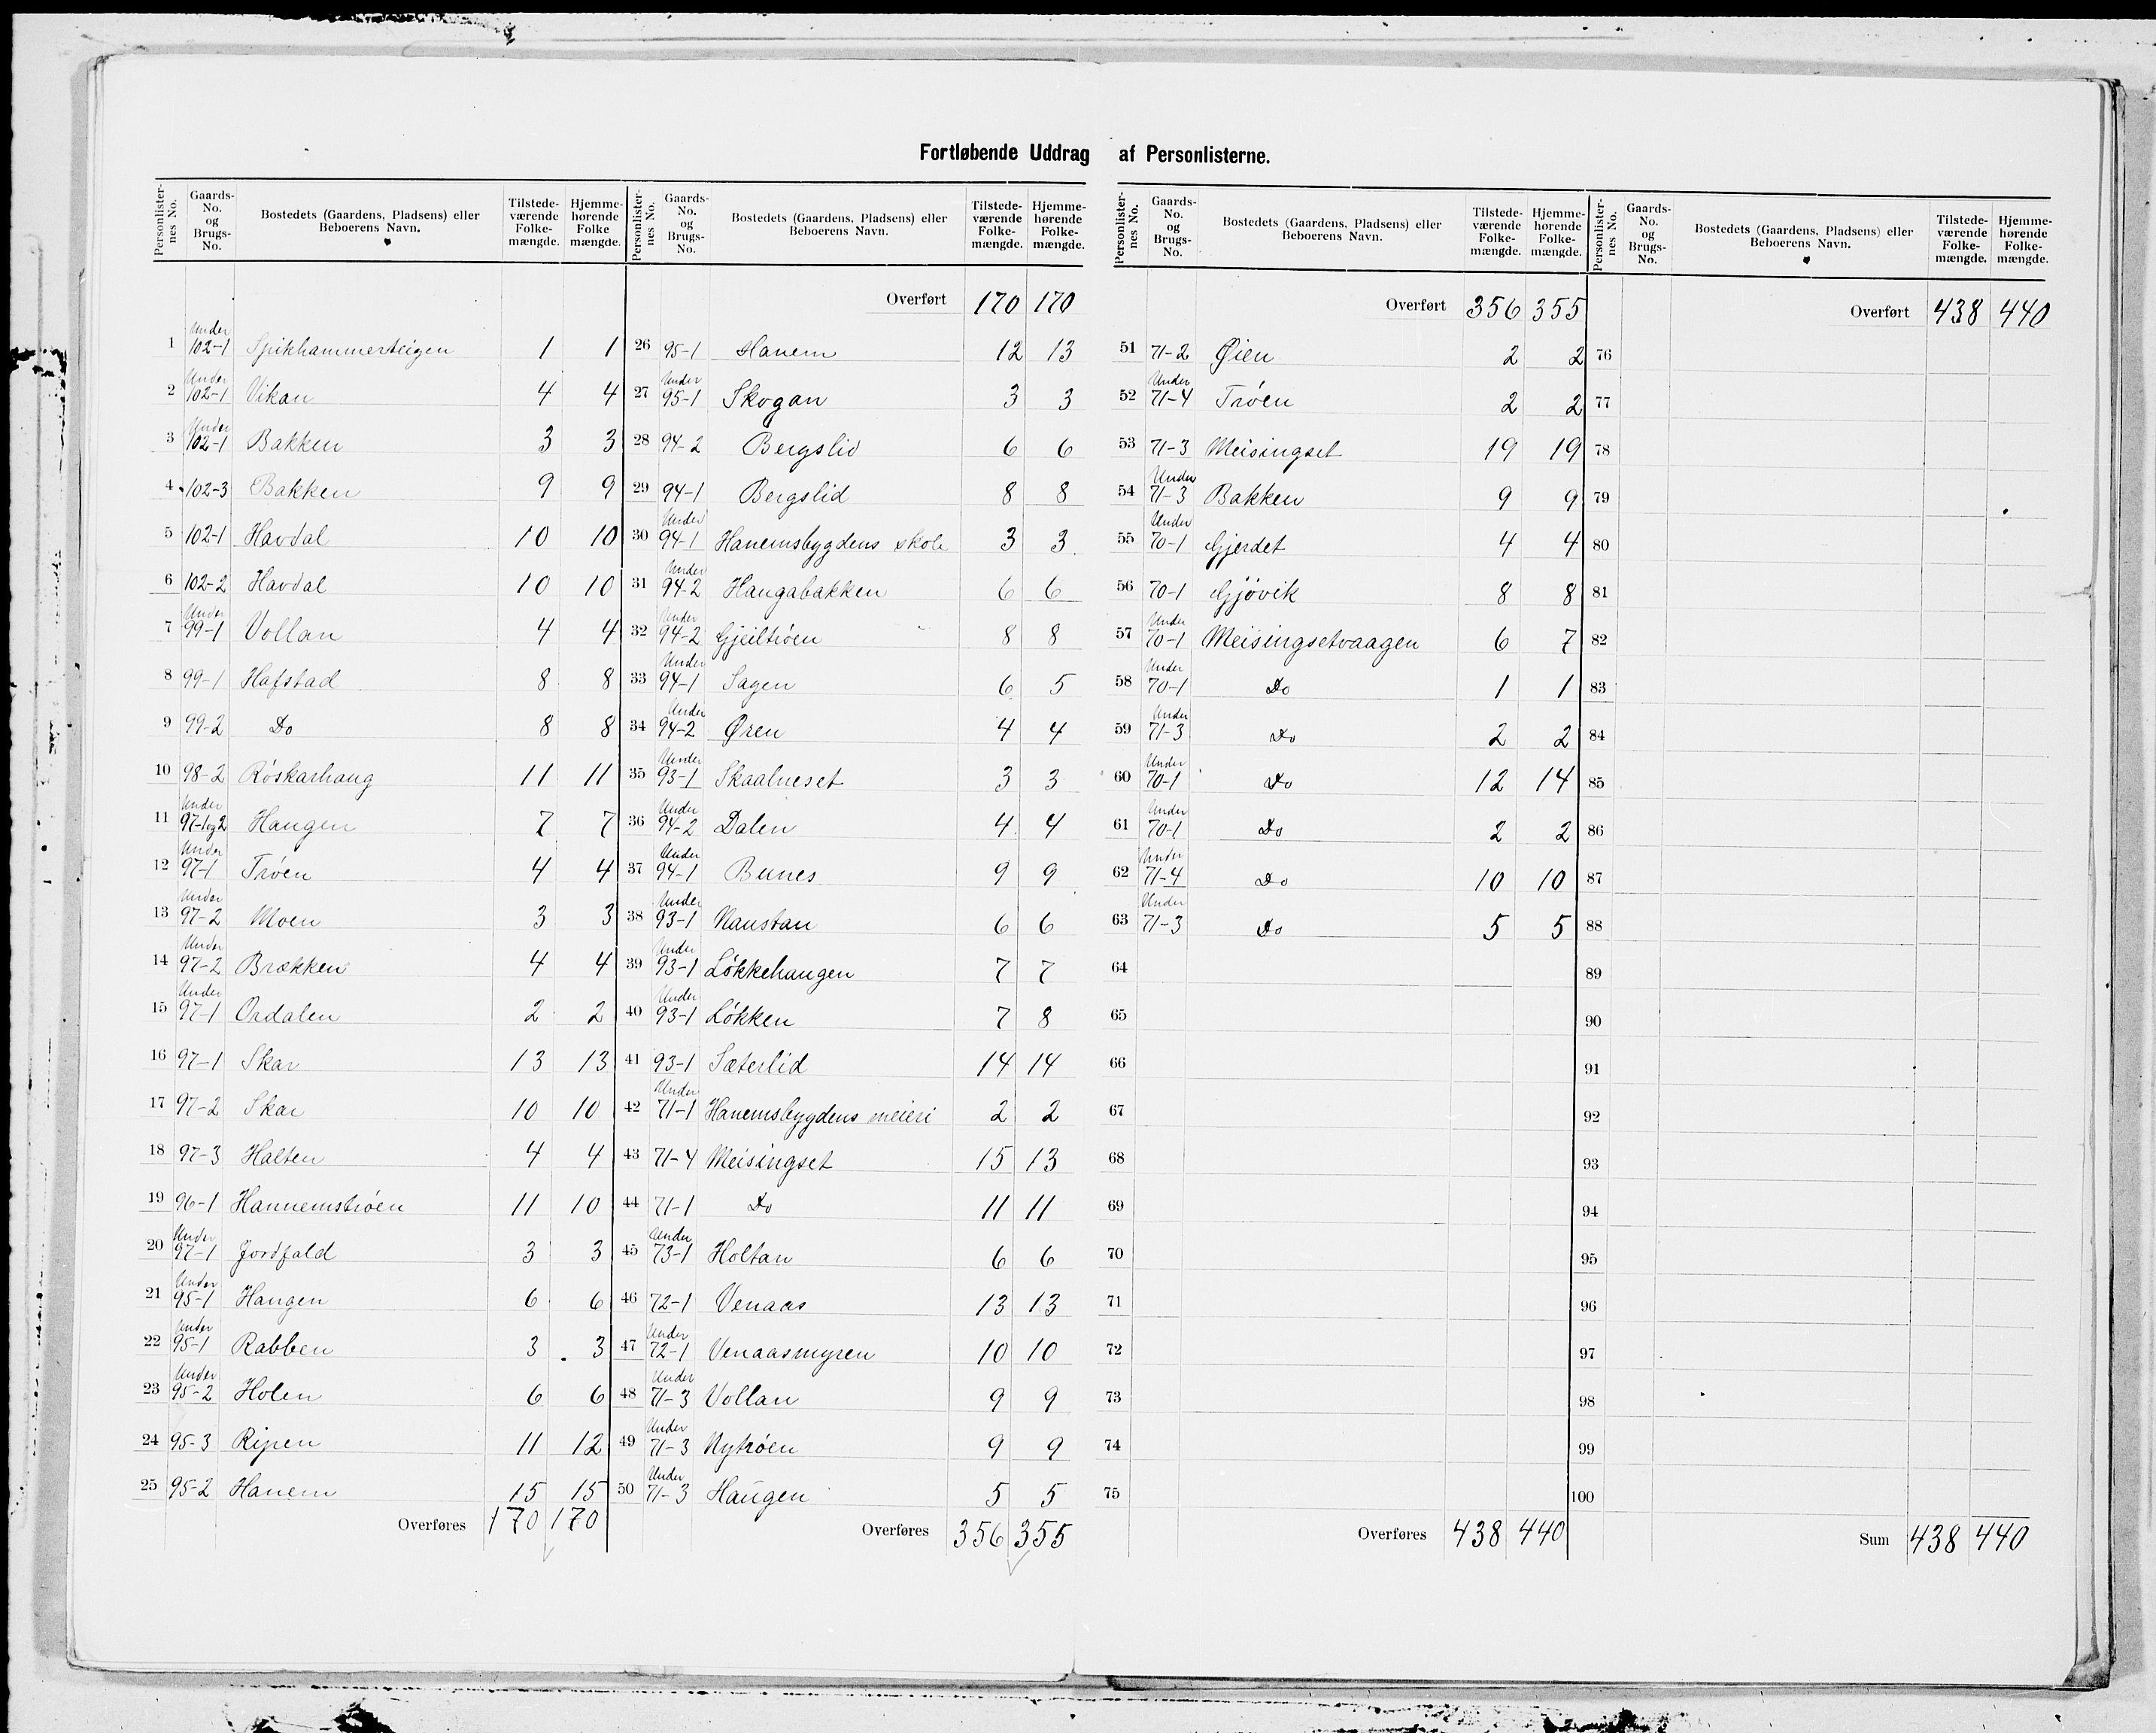 Fortløbende Uddrag af Personlisterne.
Personlister-nes No. | Gaards-No. og Brugs-No. | Bostedets (Gaardens, Pladsens) eller Beboerens Navn. | Tilstede-værende Folke-mængde. | Hjemme-hørende Folke mængde.
1 Under 102-1 Spikhammerteigen 1 1
2 Under 102-1 Vikan 4 4
3 Under 102-1 Bakken 3 3
4 102-3 Bakken 9 9
5 102-1 Havdal 10 10
6 102-2 Havdal 10 10
7 Under 99-1 Vollan 4 4
8 99-1 Hafstad 8 8
9 99-2 Do 8 8
10 98-2 Røskarhaug 11 11
11 Under 97-1og2 Haugen 7 7
12 Under 97-1 Trøen 4 4
13 Under 97-2 Moen 3 3
14 Under 97-2 Brækken 4 4
15 Under 97-1 Ordalen 2 2
16 97-1 Skar 13 13
17 97-2 Skar 10 10
18 97-3 Halten 4 4
19 96-1 Hannemstrøen 11 10
20 Under 97-1 Jordfald 3 3
21 Under 95-1 Haugen 6 6
22 Under 95-1 Rabben 3 3
23 Under 95-2 Holen 6 6
24 95-3 Ripen 11 12
25 95-2 Hanem 15 15
Overføres 170 170
Personlister-nes No. | Gaards-No. og Brugs-No. | Bostedets (Gaardens, Pladsens) eller Beboerens Navn. | Tilstede-værende Folke-mængde. | Hjemme-hørende Folke-mængde.
Overført 170 170
26 95-1 Hanem 12 13
27 Under 95-1 Skogan 3 3
28 94-2 Bergslid 6 6
29 94-1 Bergslid 8 8
30 Under 94-1 Hanemsbygdens skole 3 3
31 Under 94-2 Haugabakken 6 6
32 Under 94-2 Gjeiltrøen 8 8
33 Under 94-1 Sagen 6 5
34 Under 94-2 Øren 4 4
35 Under 93-1 Skaalneset 3 3
36 Under 94-2 Dalen 4 4
37 Under 94-1 Bunes 9 9
38 Under 93-1 Naustan 6 6
39 Under 93-1 Løkkehaugen 7 7
40 Under 93-1 Løkken 7 8
41 93-1 Sæterlid 14 14
42 Under 71-1 Hanemsbygdens meieri 2 2
43 71-4 Meisingset 15 13
44 71-1 Do 11 11
45 Under 73-1 Holtan 6 6
46 72-1 Venaas 13 13
47 Under 72-1 Venaasmyren 10 10
48 Under 71-3 Vollan 9 9
49 Under 71-3 Nytrøen 9 9
50 Under 71-3 Haugen 5 5
Overføres 356 355
Personlister-nes No. | Gaards-No. og Brugs-No. | Bostedets (Gaardens, Pladsens) eller Beboerens Navn. | Tilstede-værende Folke-mængde. | Hjemme-hørende Folke-mængde.
Overført 356 355
51 71-2 Øien 2 2
52 Under 71-4 Trøen 2 2
53 71-3 Meisingset 19 19
54 Under 71-3 Bakken 9 9
55 Under 70-1 Gjerdet 4 4
56 70-1 Gjøvik 8 8
57 Under 70-1 Meisingsetvaagen 6 7
58 Under 70-1 Do 1 1
59 Under 71-3 Do 2 2
60 Under 70-1 Do 12 14
61 Under 70-1 Do 2 2
62 Under 71-4 Do 10 10
63 Under 71-3 Do 5 5
64
65
66
67
68
69
70
71
72
73
74
75
Overføres 438 440
Personlister-nes No. | Gaards-No. og Brugs-No. | Bostedets (Gaardens, Pladsens) eller Beboerens Navn. | Tilstede-værende Folke-mængde. | Hjemme-hørende Folke-mængde.
Overført 438 440
76
77
78
79
80
81
82
83
84
85
86
87
88
89
90
91
92
93
94
95
96
97
98
99
100
Sum 438 440